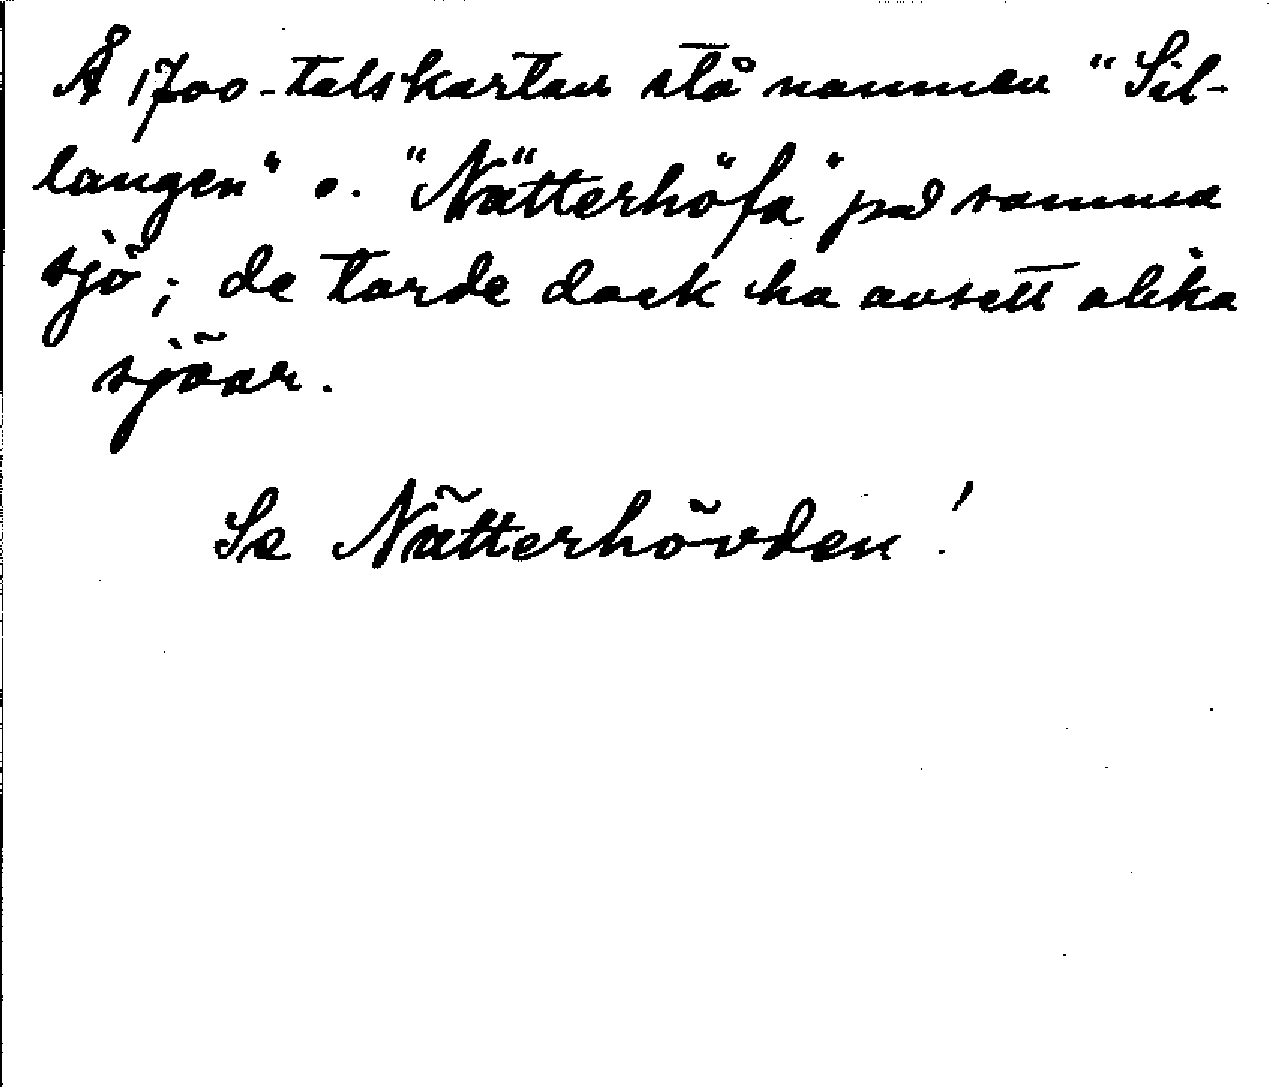 Å 1700-talskartan stå namnen "Sil-
langen" o. "Nätterhöfa" på samma
sjö; de torde dock ha avsett olika
sjöar.
Se Nätterhövden!